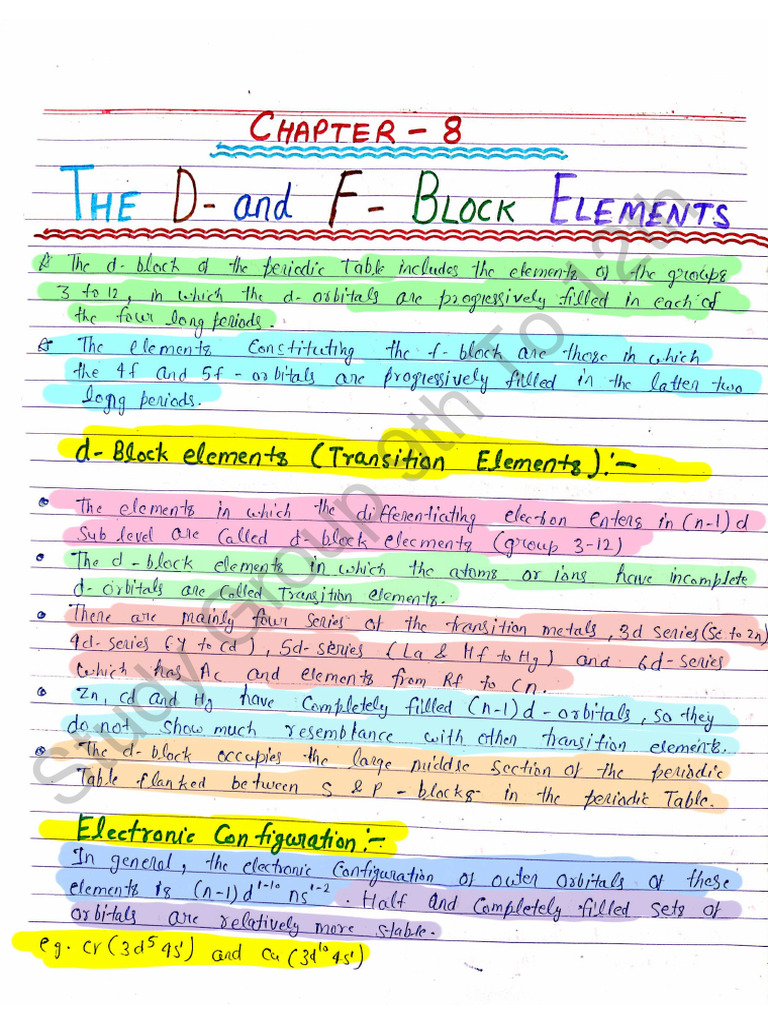 CHAPTER - 8
THE D- and F- BLOCK ELEMENTS
The d-block of the periodic Table includes the elements of the groups
3 to 12, in which the d-orbitals are progressively filled in each of
the four long periods.
The elements Constituting the f-block are those in which
the 4f and 5f-orbitals are progressively filled in the latter two
long periods.
d-Block elements (Transition Elements):-
The elements in which the differentiating election enters in (n-1) d
Sub level are Called d-block elecments (group 3-12)
The d-block elements in which the atoms or ions have incomplete
d-orbitals are Called Transition elements.
There are mainly four series of the transition metals, 3d series (Sc to Zn)
4d-series (Y to Cd), 5d-series (La & Hf to Hg) and 6d-series
which has Ac and elements from Rf to Cn.
Zn, Cd and Hg have Completely filled (n-1) d-orbitals, so they
do not show much resembtance with other transition elements.
The d-block occupies the large middse section of the periodic
Table flanked between S & P-blocks in the periodic Table.
Electronic Configuration:-
In general, the electronic Configuration of outer orbitals of these
elements is (n-1)d¹⁻¹⁰ ns¹⁻². Half and Completely filled sets of
orbitals are relatively more stable.
eg. Cr (3d⁵ 4s¹) and Cu (3d¹⁰ 4s¹)
Study Group 9th To 12th